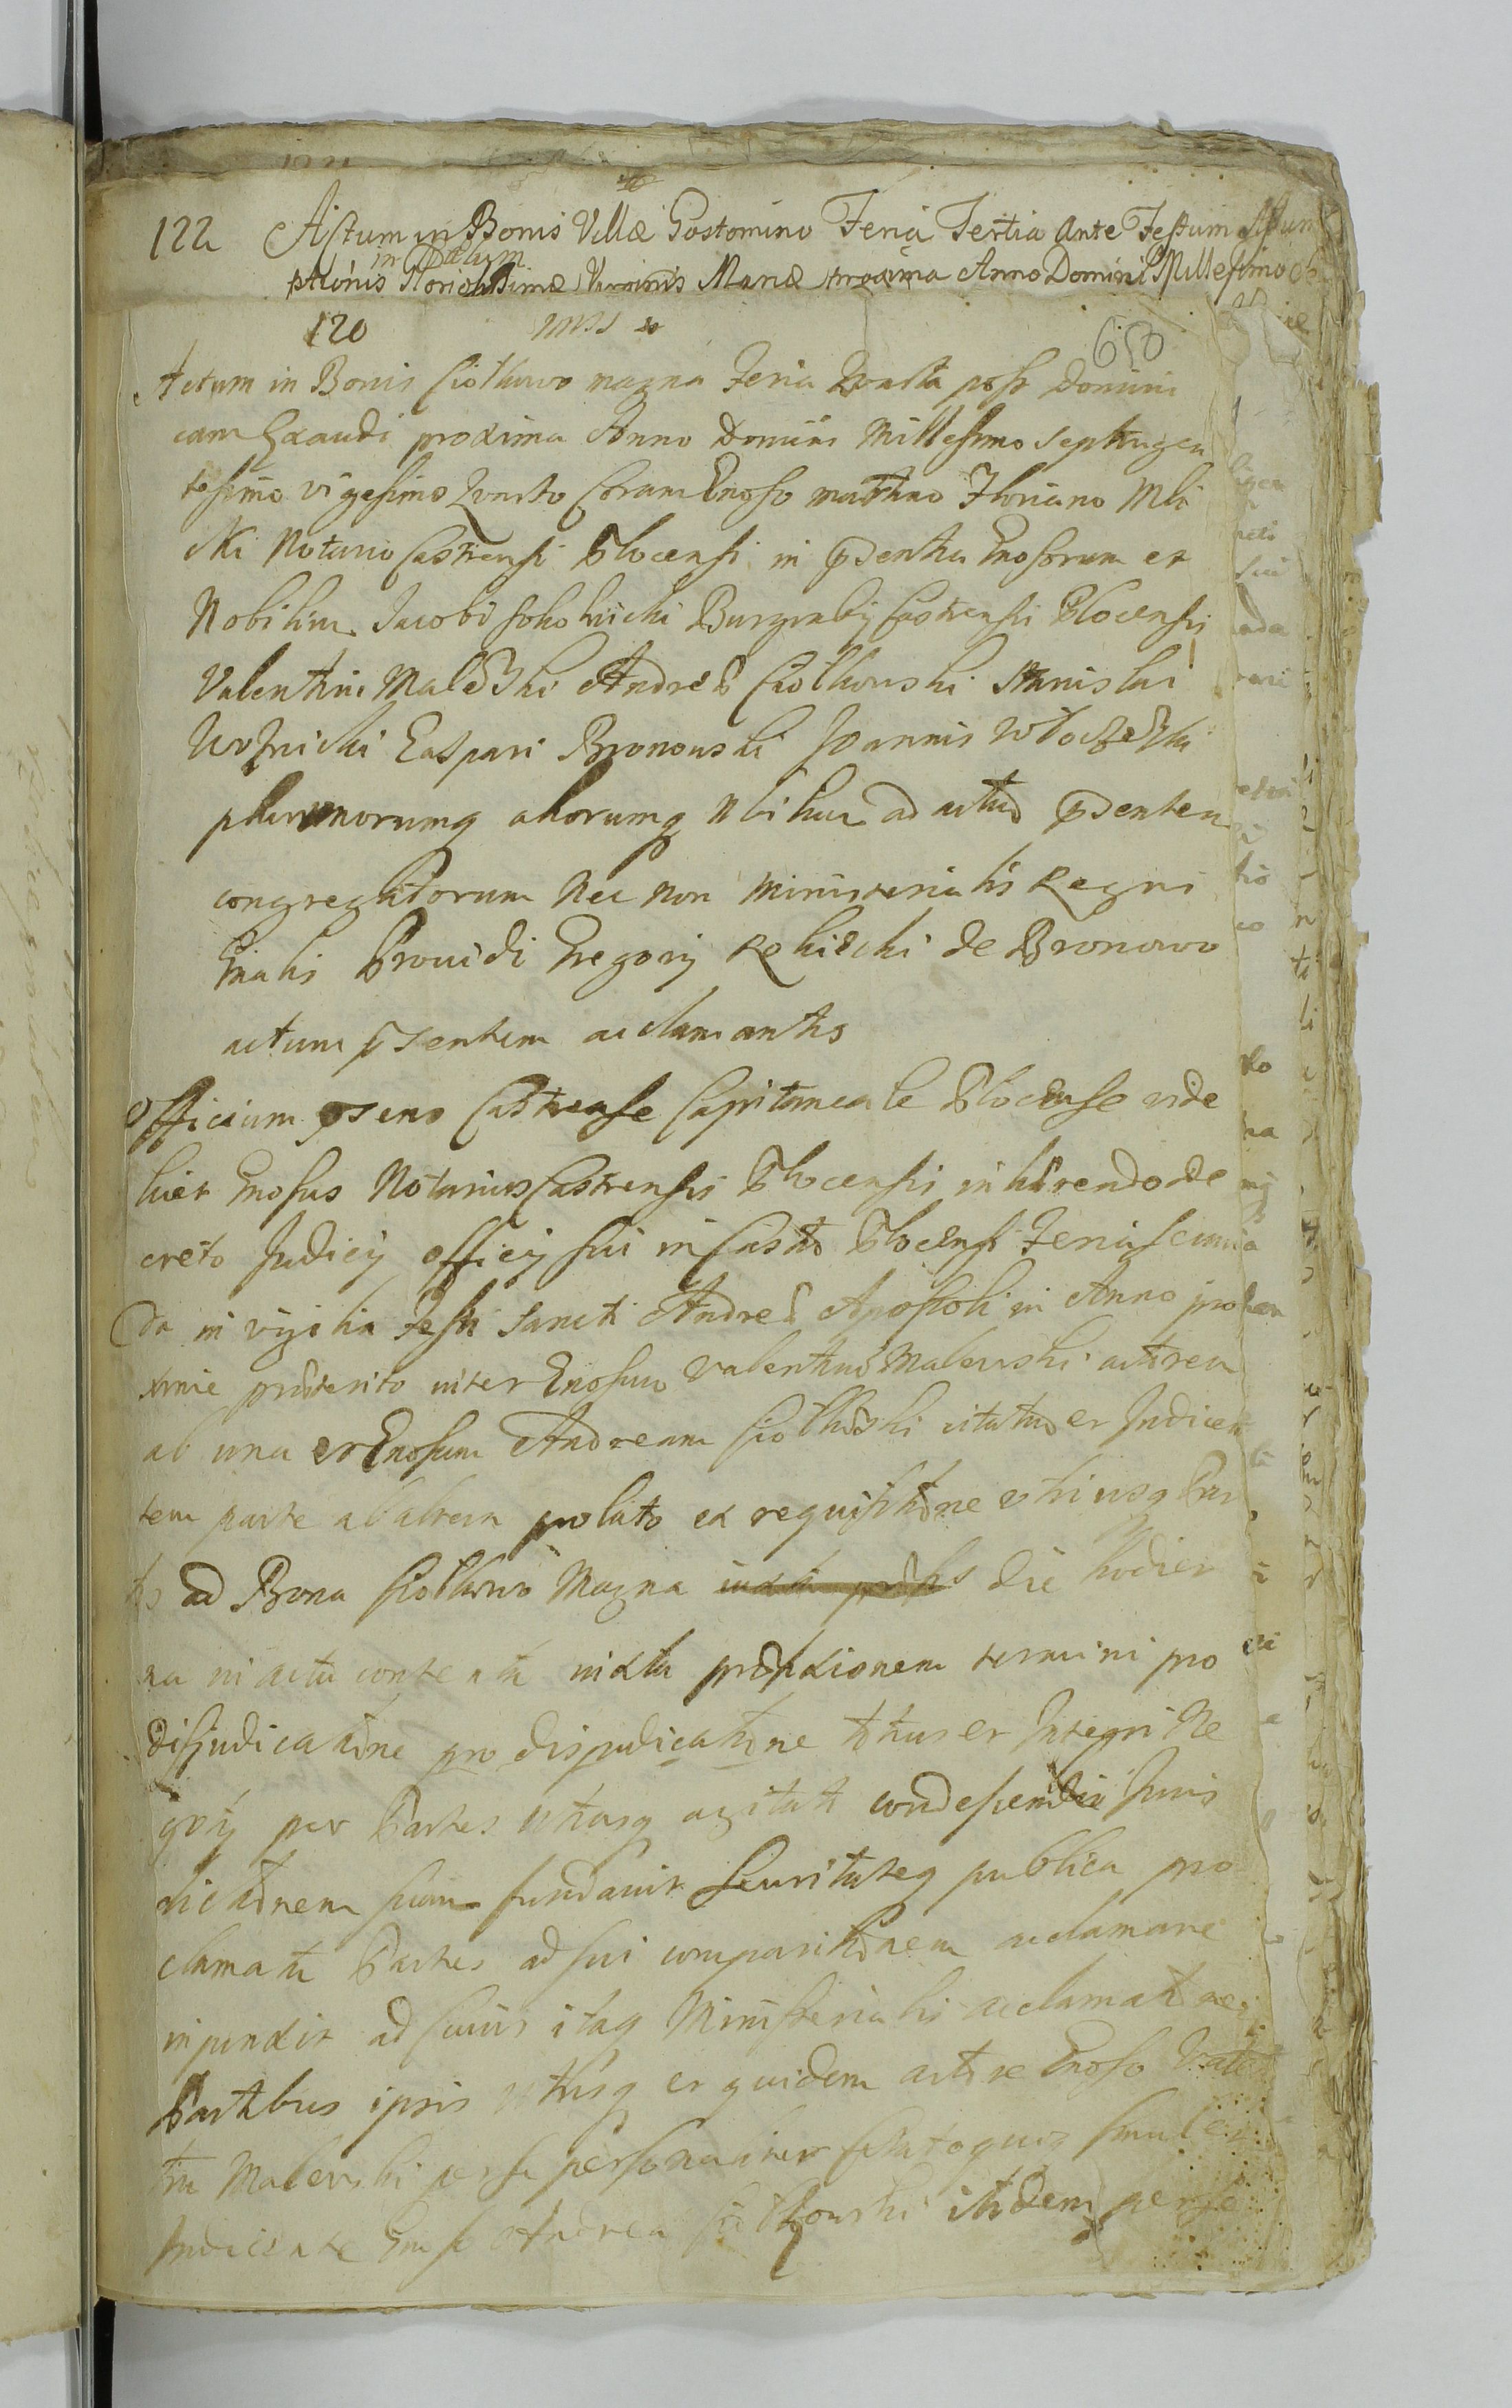 122 Actum in Bonis Villæ Gostomino Feria Tertia ante Festum Assum
in Cœlum
ptionis Gloriosissimæ Virginis Mariæ proxima Anno Domini Millesimo
120
650
Actum in Bonis Ciołkowo magna Feria Quarta post Domini
cam Exaudi proxima Anno Domini Millesimo Septingen
tesimo vigesimo Quarto Coram Gnoso Floriano
cki Notario Castrensi Plocensi in pDentia Gnosorum et
Nobilium Jacobi Sokolnicki Burgrabij Castrensis Plocensis
Valentini Maleski Andreæ Ciołkowski Stanislai
Woznicki Caspari Bronowski Joannis
plurimorumq aliorumq Nbilium ad actum pDentem
congregatorum Nec non Ministerialis Regni
Gnalis Providi Gregorij de Bronowo
actum pSentem acclamantis
Officium pSens Castrense Capitaneale Plocense vide
licet Gnosus Notarius Castrensis Plocensis inhærendo de
creto Judicij Officij sui in Castro Plocensi Feria secun
da in vigilia Festi Sancti Andreæ Apostoli in Anno pro
xime præterito inter Gnosum Valentinum Malewski actorem
ab una et Gnosum Andream Ciołkowski citatum et Judicen
tem parte ab altera prolato ex requisitione utriusq Par
tis ad Bona Ciołkowo Magna die hodier
na in actu contenta iuxta præfixionem termini pro
disjudicatione pro disjudicatione totius et Integri Ne
gotij per Partes utrasq agitati condescendit Juris
dictionem suam fundavit Securitateq publica pro
clamata Partes ad sui comparitionem acclamare
injunxit ad cuius itaq Ministerialis acclamationem
Partibus ipsis utrisq et quidem actore Gnoso Valen
tino Malewski per se personaliter citatoque simul et
Judicente Gnoso Andrea Ciołkowski itidem per se